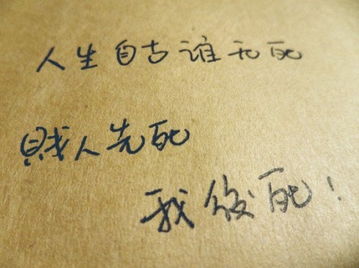 人生自古谁无死
贱人先死
我后死！